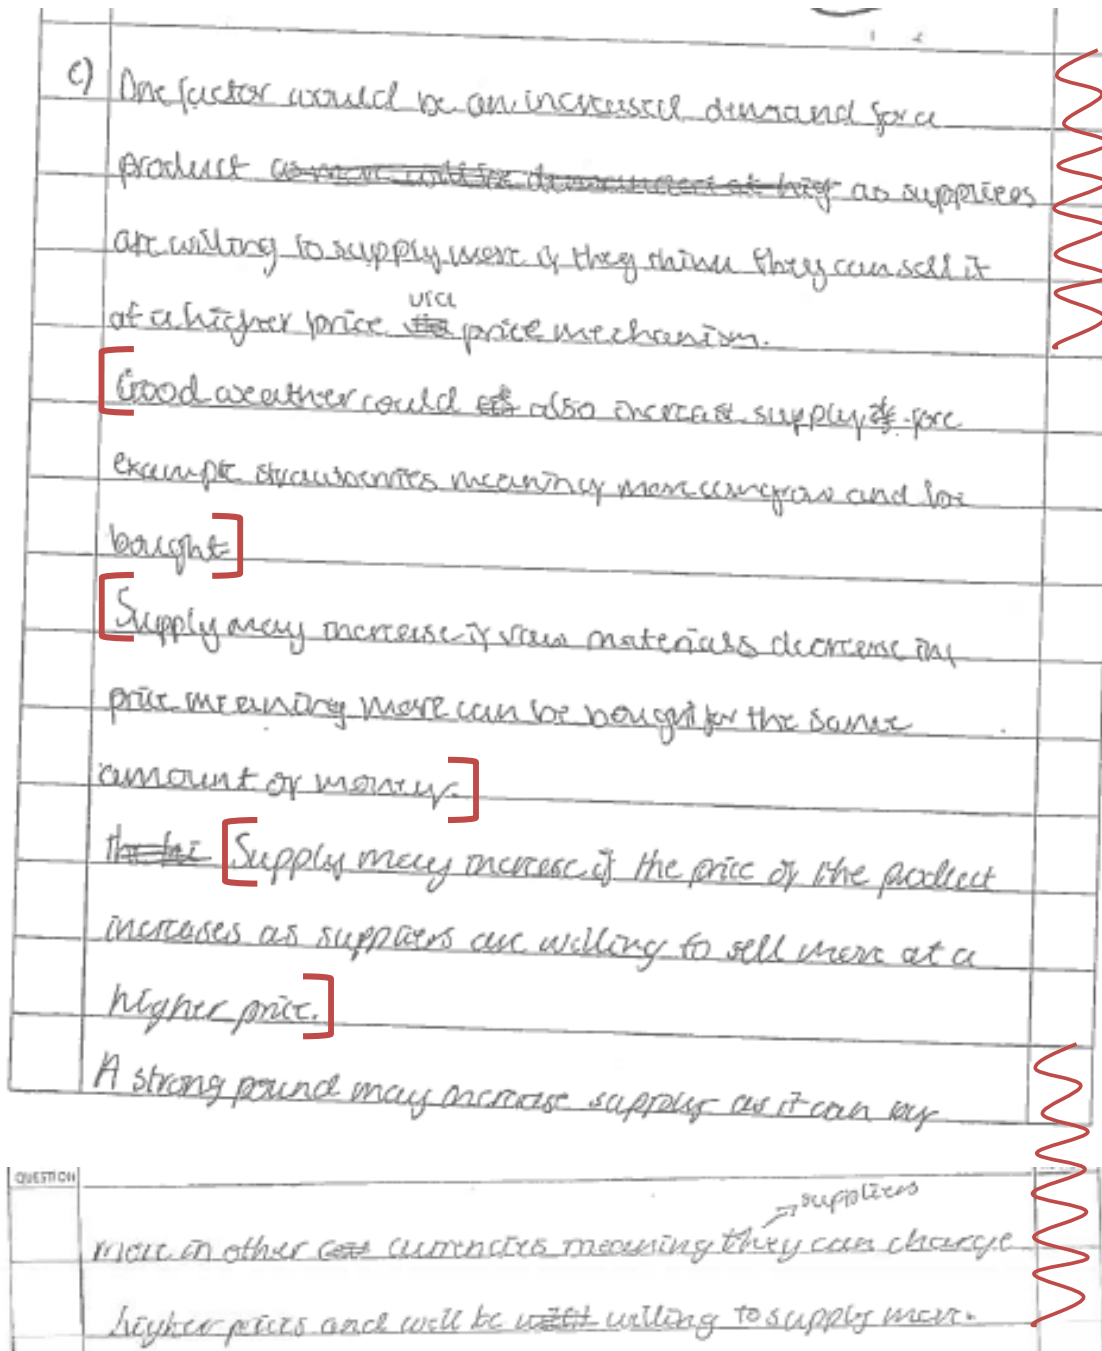 c) One factor would be an increased demand for a
product as suppliers
are willing to supply more if they think they can sell it
at a higher price via price mechanism.
Good weather could also increase supply fore
example strawberries meaning more can grow and be
bought
Supply may increase if raw materials decrease in
price meaning more can be bought for the same
amount of money.
Supply may increase if the price of the product
increases as suppliers are willing to sell more at a
higher price.
A strong pound may increase supply as it can buy
QUESTION
suppliers
more in other currencies meaning they can charge
higher prices and will be willing to supply more.